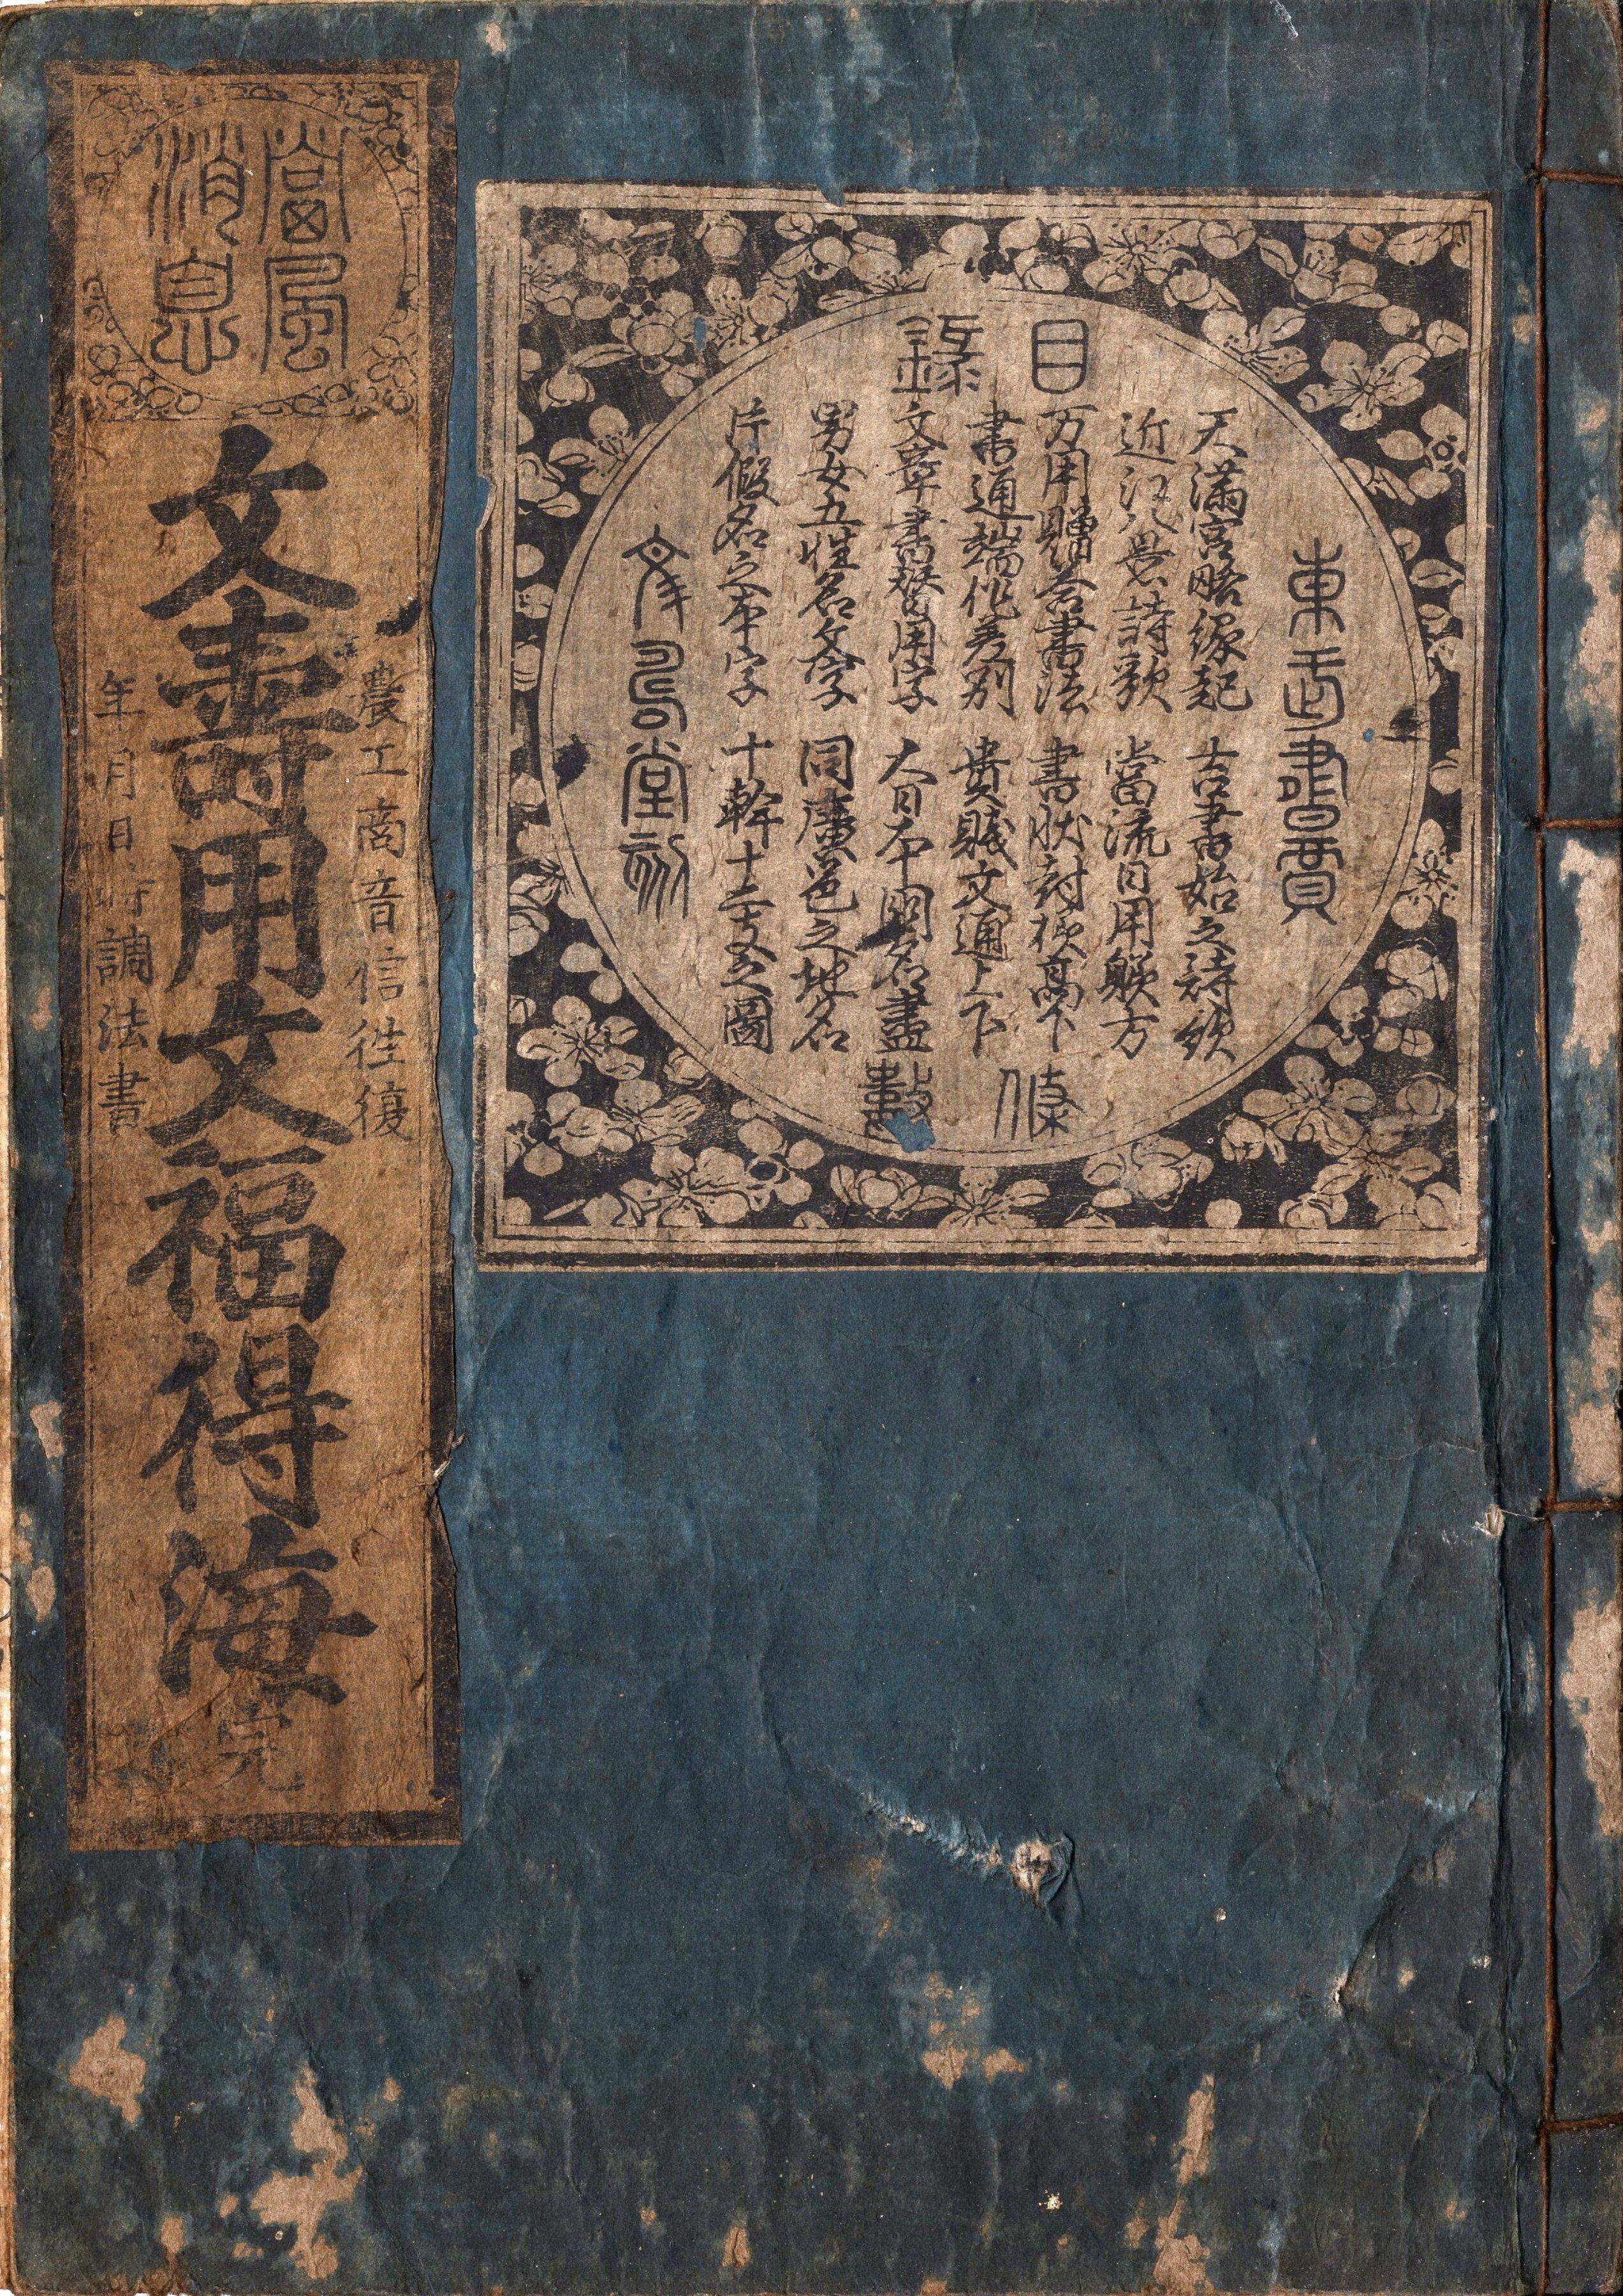 東武書賈
目録
天満宮略縁起 吉書始之詩歌
近江八景詩歌 當流日用躾方
万用贈答書法 書状封様高下
書通端作差別 貴賤文通上下
文章書替用字 大日本国名盡
男女五性名文字 同廣邑之地名
片假名之本字 十幹十二支之圖
條數
堂
當風
消息
農工商音信往復
文壽用文福得海 完
年月日時調法書